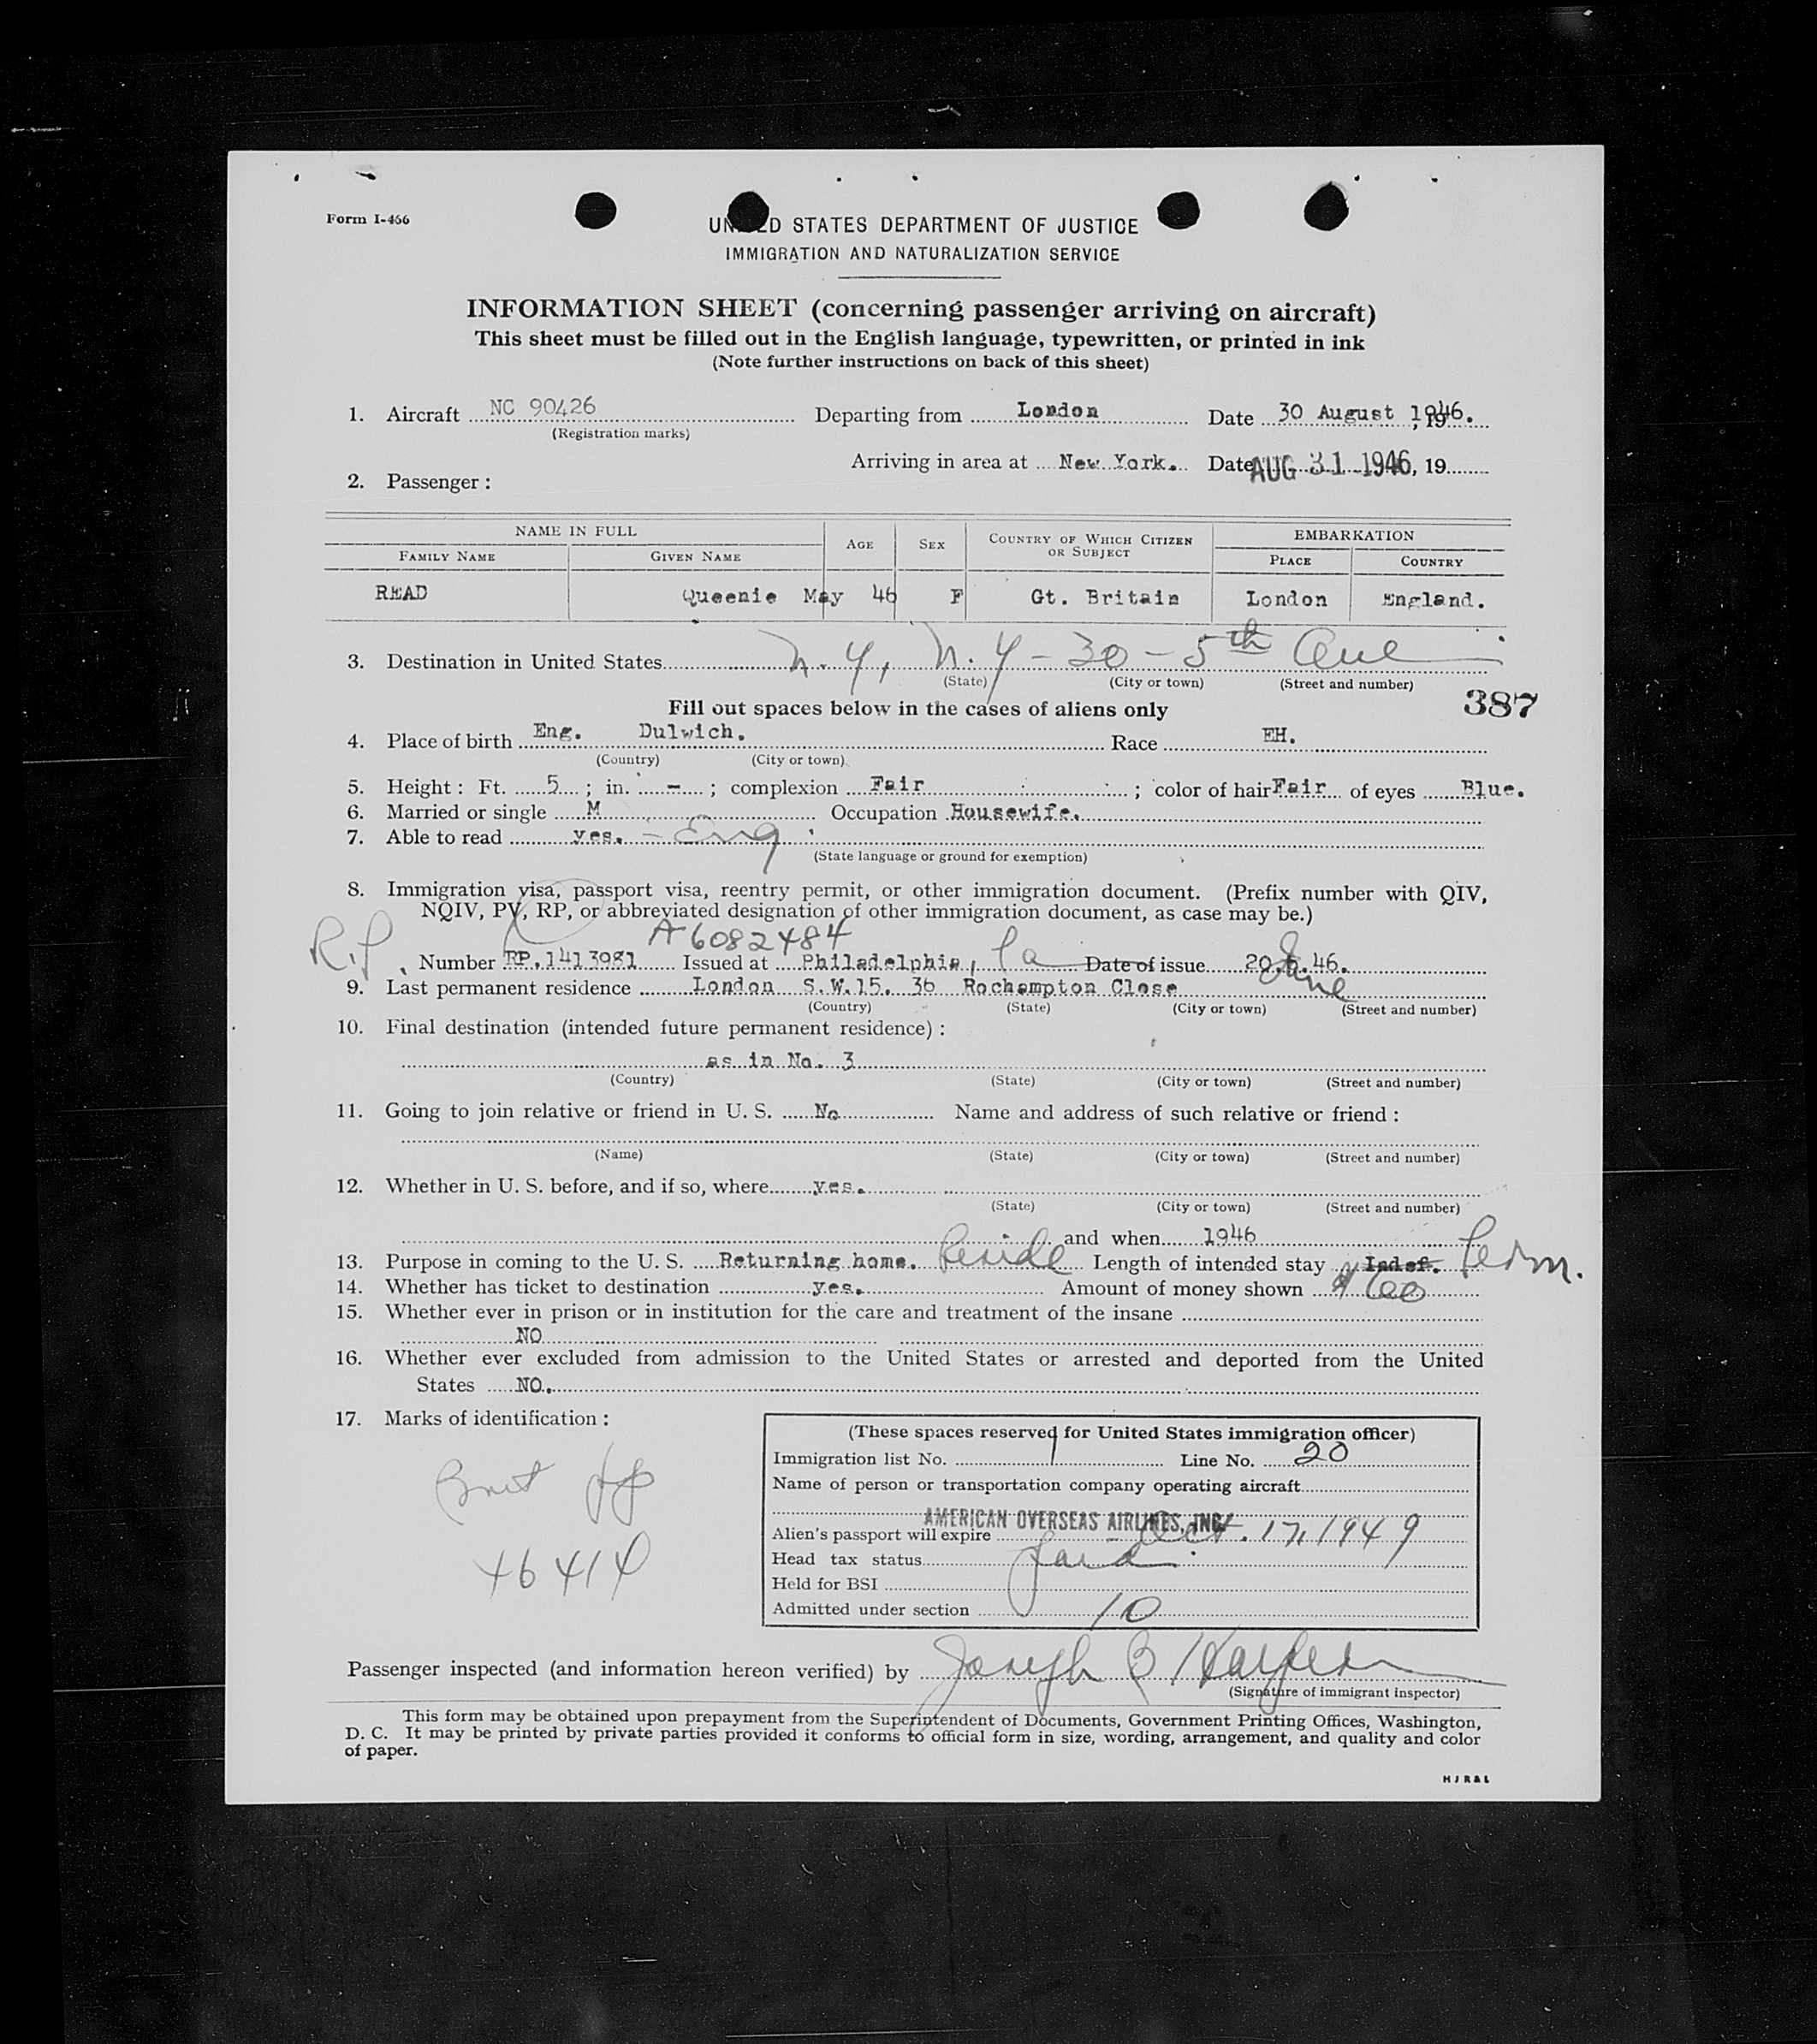 Form I-466
UNITED STATES DEPARTMENT OF JUSTICE
IMMIGRATION AND NATURALIZATION SERVICE
INFORMATION SHEET (concerning passenger arriving on aircraft)
This sheet must be filled out in the English language, typewritten, or printed in ink
(Note further instructions on back of this sheet)
1. Aircraft NC 90426 Departing from London Date 30 August 1946., 19
(Registration marks)
Arriving in area at New York. Date AUG 31 1946, 19
2. Passenger:
NAME IN FULL AGE SEX COUNTRY OF WHICH CITIZEN OR SUBJECT EMBARKATION
FAMILY NAME GIVEN NAME PLACE COUNTRY
READ Queenie May 46 F Gt. Britain London England.
3. Destination in United States N.Y, N.Y - 30 - 5th Ave
(State) (City or town) (Street and number)
387
Fill out spaces below in the cases of aliens only
4. Place of birth Eng. Dulwich. Race EH.
(Country) (City or town)
5. Height: Ft. 5; in. -; complexion Fair; color of hair Fair of eyes Blue.
6. Married or single M Occupation Housewife.
7. Able to read yes. - Eng
(State language or ground for exemption)
8. Immigration visa, passport visa, reentry permit, or other immigration document. (Prefix number with QIV,
NQIV, PV, RP, or abbreviated designation of other immigration document, as case may be.)
A6082484
R.P. Number RP.1413981 Issued at Philadelphia, Pa Date of issue 20.6.46. June
9. Last permanent residence London S.W.15. 36 Rochampton Close
(Country) (State) (City or town) (Street and number)
10. Final destination (intended future permanent residence):
as in No. 3
(Country) (State) (City or town) (Street and number)
11. Going to join relative or friend in U. S. No Name and address of such relative or friend:
(Name) (State) (City or town) (Street and number)
12. Whether in U. S. before, and if so, where yes.
(State) (City or town) (Street and number)
and when 1946
13. Purpose in coming to the U. S. Returning home. Reside Length of intended stay Indef. Perm.
14. Whether has ticket to destination yes. Amount of money shown $100
15. Whether ever in prison or in institution for the care and treatment of the insane
NO
16. Whether ever excluded from admission to the United States or arrested and deported from the United
States NO.
17. Marks of identification:
Brit pp
46414
(These spaces reserved for United States immigration officer)
Immigration list No. 1 Line No. 20
Name of person or transportation company operating aircraft
AMERICAN OVERSEAS AIRLINES, INC.
Alien's passport will expire Oct. 17, 1949
Head tax status paid
Held for BSI
Admitted under section 10
Passenger inspected (and information hereon verified) by Joseph B
(Signature of immigrant inspector)
This form may be obtained upon prepayment from the Superintendent of Documents, Government Printing Offices, Washington,
D. C. It may be printed by private parties provided it conforms to official form in size, wording, arrangement, and quality and color
of paper.
HJR&L